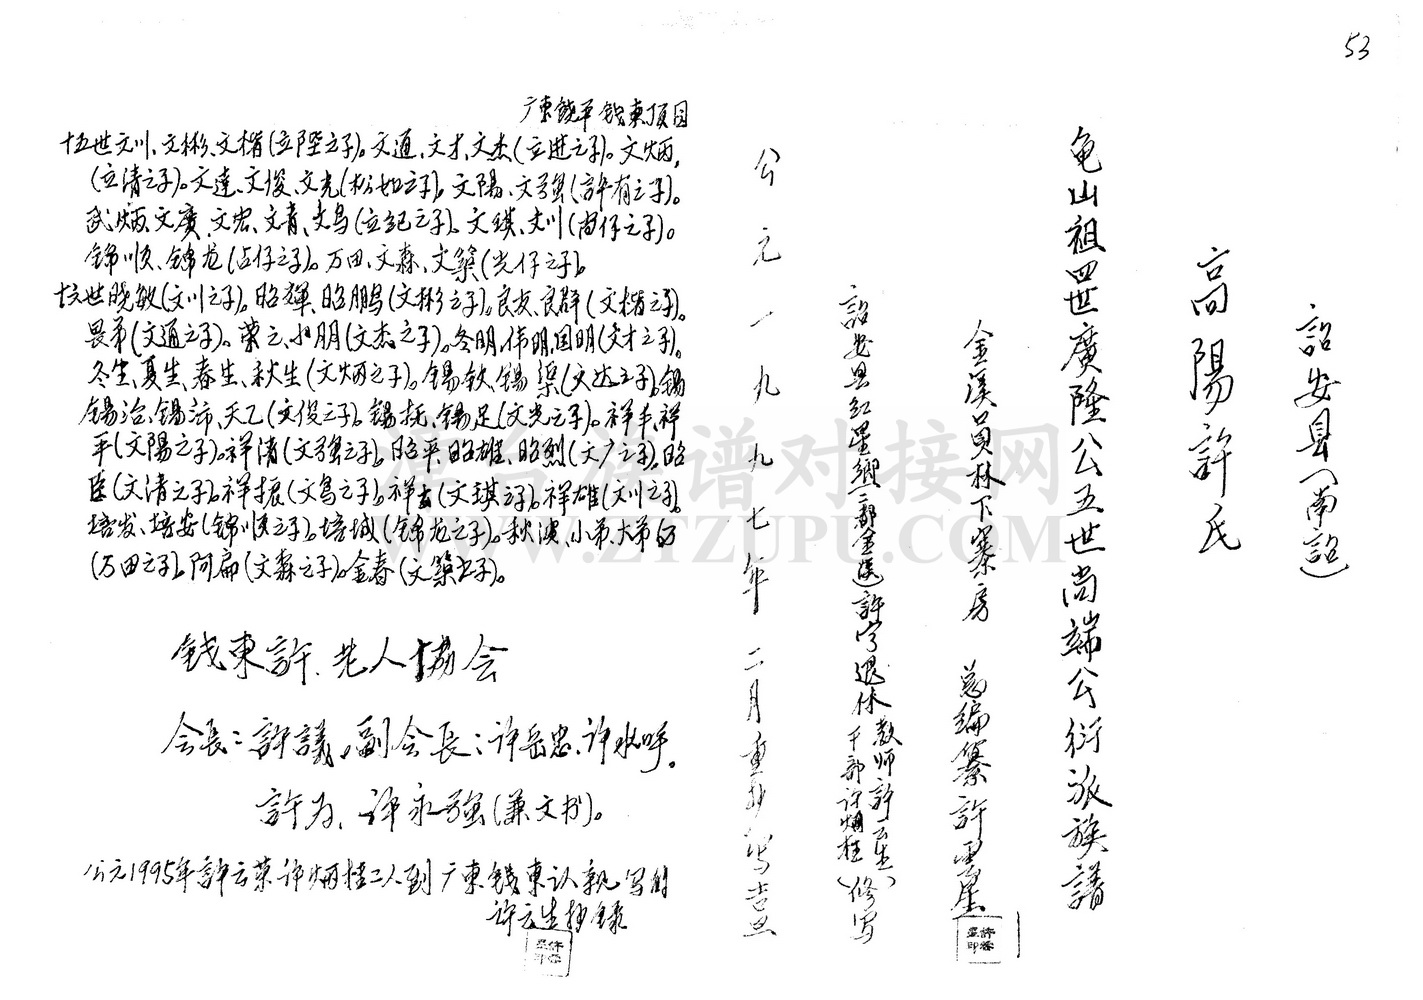 53
詔安县(南詔)
高陽許氏
龟山祖四世廣隆公五世尚端公衍派族譜
金溪員林下寨房 总編纂許墨星
詔安县紅星鄉(二都金溪)許字退休教师許云生 干部许炳桂(修写)
公元一九九七年二月重抄写吉旦
广東饒平钱東项目
十五世文川、文彬、文楷(立陞之子)。文通、文才、文杰(立进之子)。文炳,
(立清之子)。文達、文俊、文光(松如之子)。文陽、文强(許有之子)。
武炳、文廣、文宏、文青、文鸟(立纪之子)、文琪、文川(尚仔之子)。
錦順、錦龙(占仔之子)。万田、文森、文築(光仔之子)。
十六世晓敏(文川之子)。昭輝、昭鹏(文彬之子)。良友、良群(文楷之子)。
畏弟(文通之子)。荣之、小朋(文杰之子)。冬明、伟明、国明(文才之子)。
冬生、夏生、春生、秋生(文炳之子)。锡钦、锡渠(文达之子)。锡
锡治、锡沛、天乙(文俊之子)。锡抚、锡足(文光之子)。祥丰、祥
平(文陽之子)。祥清(文强之子)。昭平、昭雄、昭烈(文广之子)。昭
臣(文清之子)。祥振(文鸟之子)。祥(文琪之子)。祥雄(文川之子)。
培发、培安(錦順之子)。培城(錦龙之子)。秋波、小弟、大弟
(万田之子)。阿扁(文森之子)。金春(文築之子)。
钱東許、老人協会
会長:許議。副会長:许岳忠、许水呼。
許为、许永强(兼文书)。
公元1995年許云荣许炳桂二人到广東钱東认親写的
许云生抄録
源台族谱对接网
WWW.YTZUPU.COM